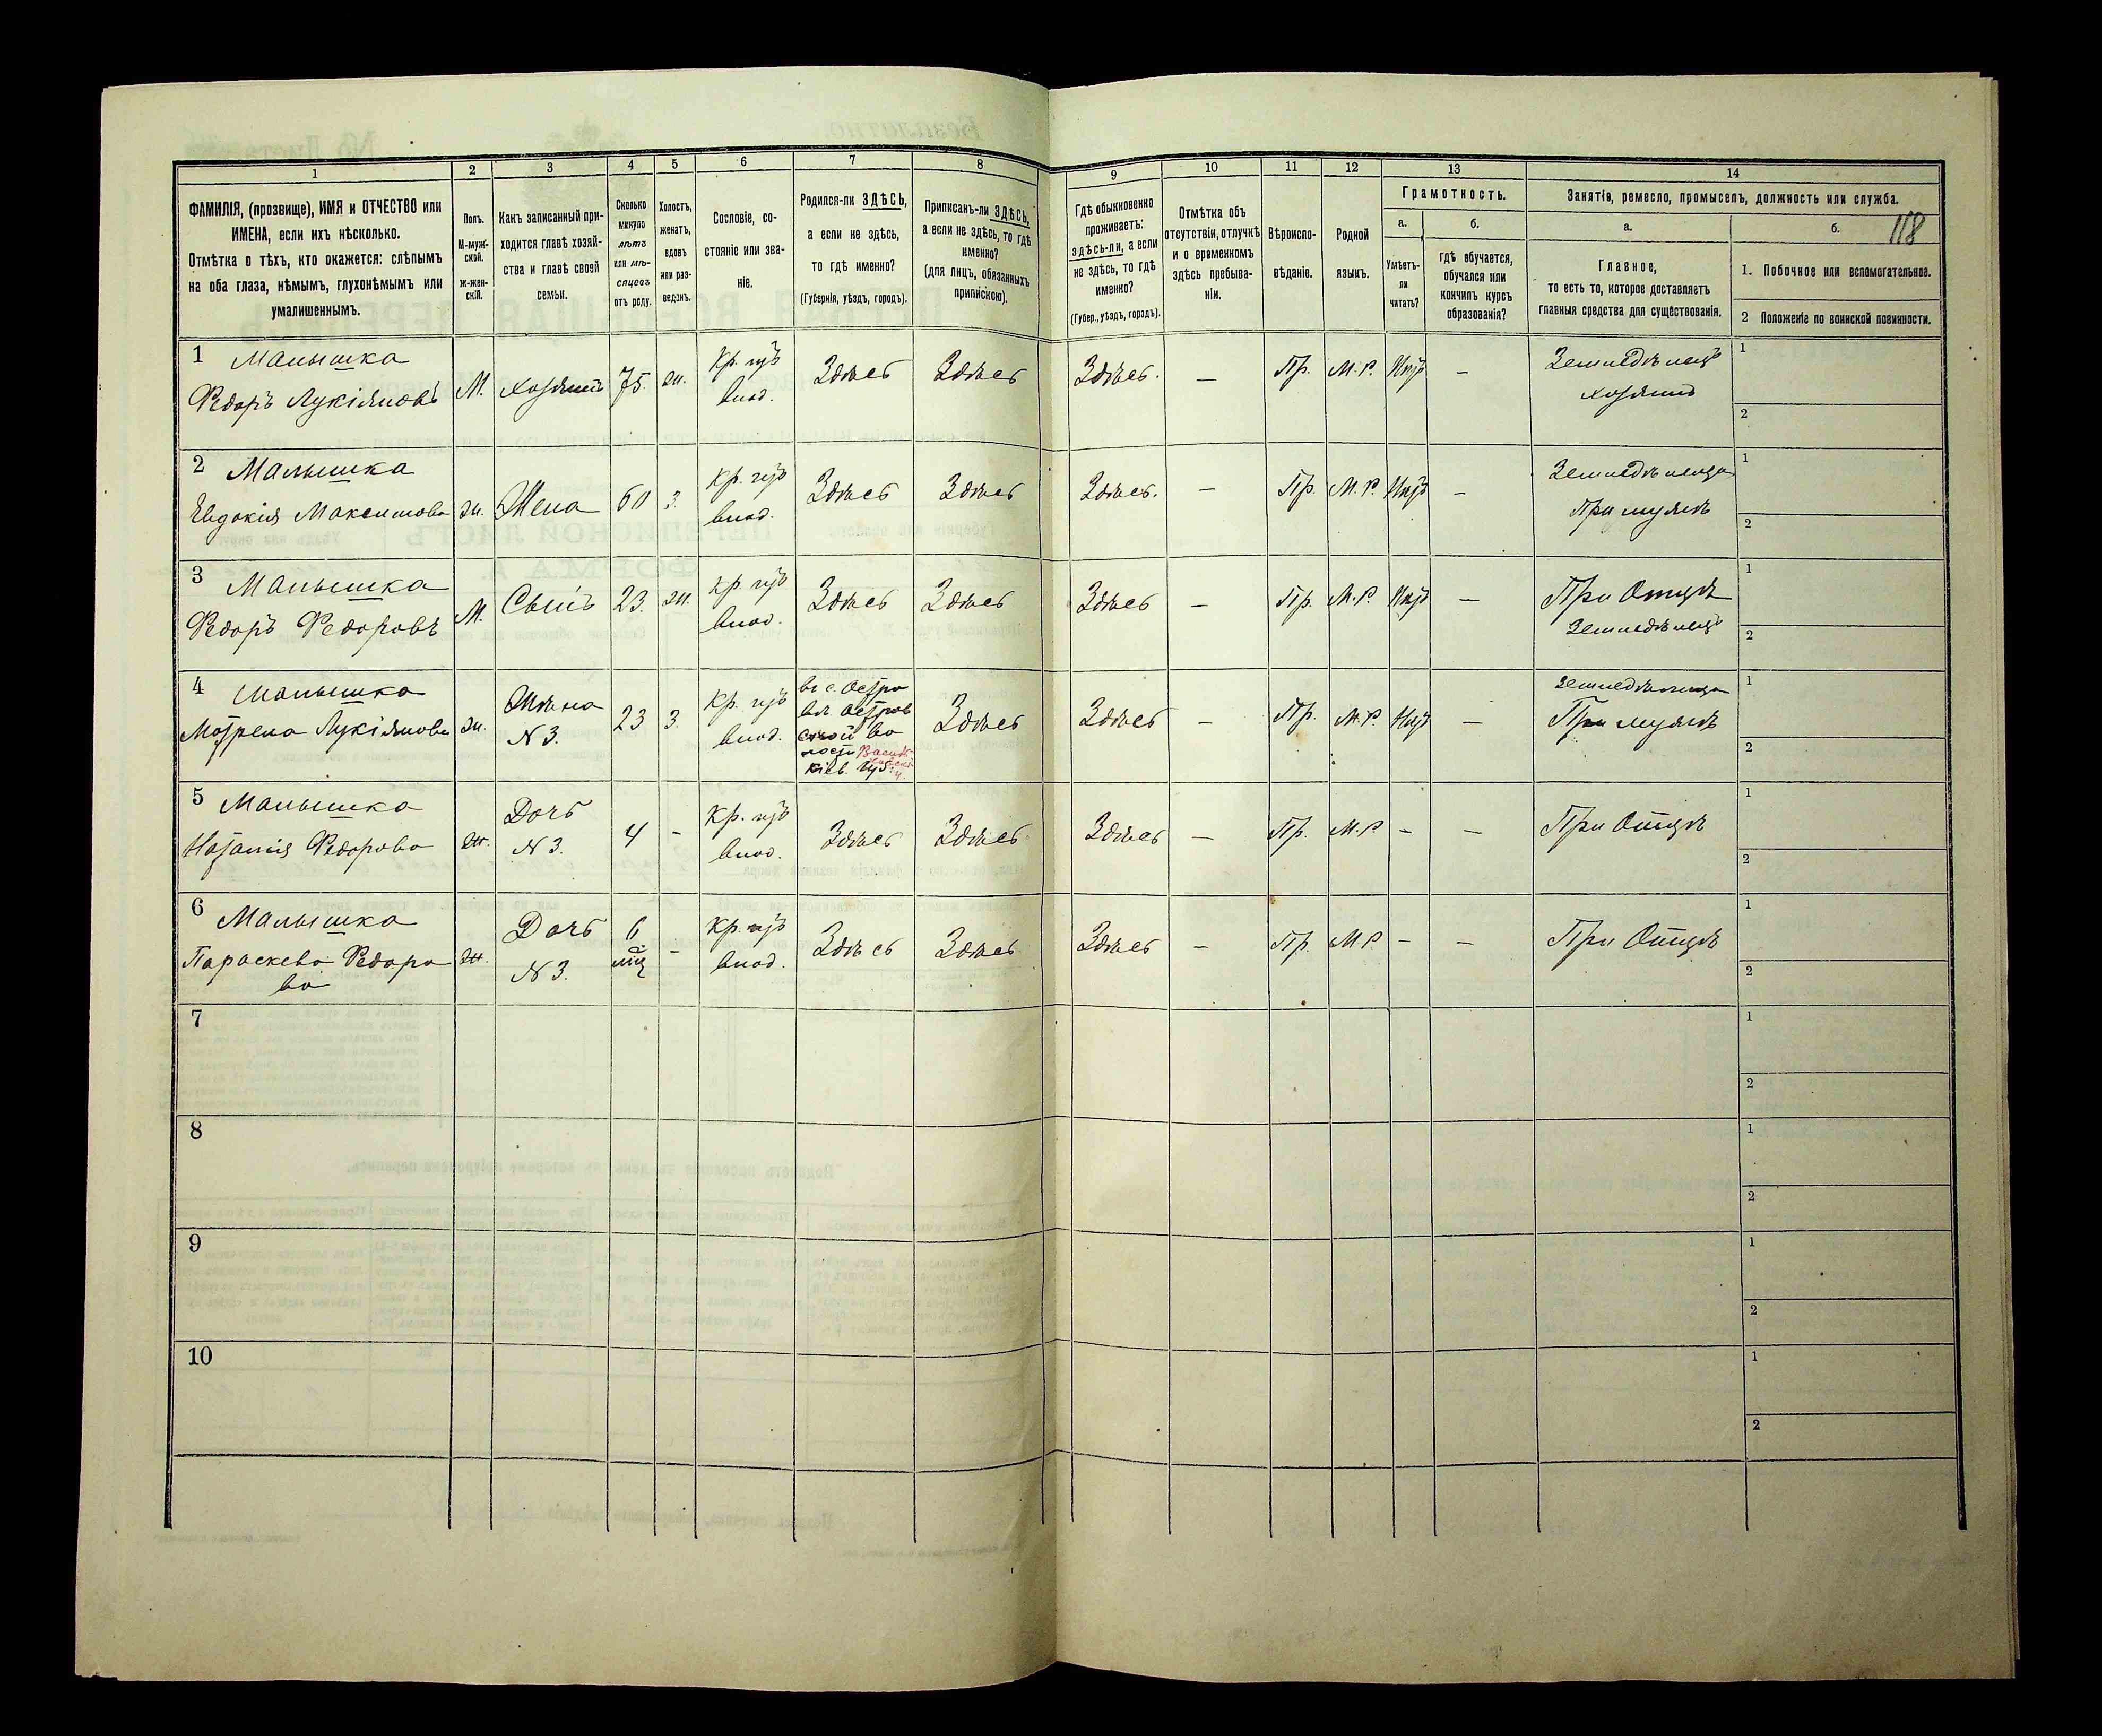 118
1 2 3 4 5 6 7 8 9 10 11 12 13 14
ФАМИЛІЯ, (прозвище), ИМЯ и ОТЧЕСТВО или
ИМЕНА, если ихъ нѣсколько.
Отмѣтка о тѣхъ, кто окажется: слѣпымъ
на оба глаза, нѣмымъ, глухонѣмымъ или
умалишеннымъ.
Полъ.
М-муж-
ской.
Ж-жен-
скій.
Какъ записанный при-
ходится главѣ хозяй-
ства и главѣ своей
семьи.
Сколько
минуло
лѣтъ
или мѣ-
сяцевъ
отъ роду.
Холостъ,
женатъ,
вдовъ
или раз-
веденъ.
Сословіе, со-
стояніе или зва-
ніе.
Родился-ли ЗДѢСЬ,
а если не здѣсь,
то гдѣ именно?
(Губернія, уѣздъ, городъ).
Приписанъ-ли ЗДѢСЬ,
а если не здѣсь, то гдѣ
именно?
(для лицъ, обязанныхъ
припискою).
Гдѣ обыкновенно
проживаетъ:
здѣсь-ли, а если
не здѣсь, то гдѣ
именно?
(Губер., уѣздъ, городъ).
Отмѣтка объ
отсутствіи, отлучкѣ
и о временномъ
здѣсь пребыва-
ніи.
Вѣроиспо-
вѣданіе.
Родной
языкъ.
Грамотность.
а.
Умѣетъ-
ли
читать?
б.
гдѣ обучается,
обучался или
кончилъ курсъ
образованія?
Занятія, ремесло, промыселъ, должность или служба.
а.
Главное,
то есть то, которое доставляетъ
главныя средства для существованія.
б.
1. Побочное или вспомогательное.
2 Положеніе по воинской повинности.
1 Малышка
Федоръ Лукіяновъ
М. хозяинъ 75. ж. Кр. изъ
влад.
Здѣсь Здѣсь Здѣсь. — Пр. М. Р. Нѣтъ — Земледѣлецъ
хозяинъ
1
2
2 Малышка
Евдокія Максимова
ж. Жена 60 з. Кр. изъ
влад.
Здѣсь Здѣсь Здѣсь. — Пр. М. Р. Нѣтъ — Земледѣлица
При мужѣ
1
2
3 Малышка
Федоръ Федоровъ
М. Сынъ 23. ж. Кр. изъ
влад.
Здѣсь Здѣсь Здѣсь — Пр. М. Р. Нѣтъ — При Отцѣ
Земледѣлецъ
1
2
4 Малышка
Мотрена Лукіянова
ж. Жѣна
N 3.
23 з. Кр. изъ
влад.
въ с. Остро
вѣ Остров
ской во
лости Васильковск.
у.
Кіев. губ:
Здѣсь Здѣсь — Пр. М. Р. Нѣтъ — Земледѣлица
При мужѣ
1
2
5 Малышка
Наталія Федорова
ж. Дочь
N 3.
4 – Кр. изъ
влад.
Здѣсь Здѣсь Здѣсь — Пр. М. Р – – При Отцѣ
1
2
6 Малышка
Параскева Федоро
ва
ж. Дочь
N 3.
6
мц
– Кр. изъ
влад.
Здѣсь Здѣсь Здѣсь — Пр. М Р – – При Отцѣ
1
2
7
1
2
8
1
2
9
1
2
10
1
2